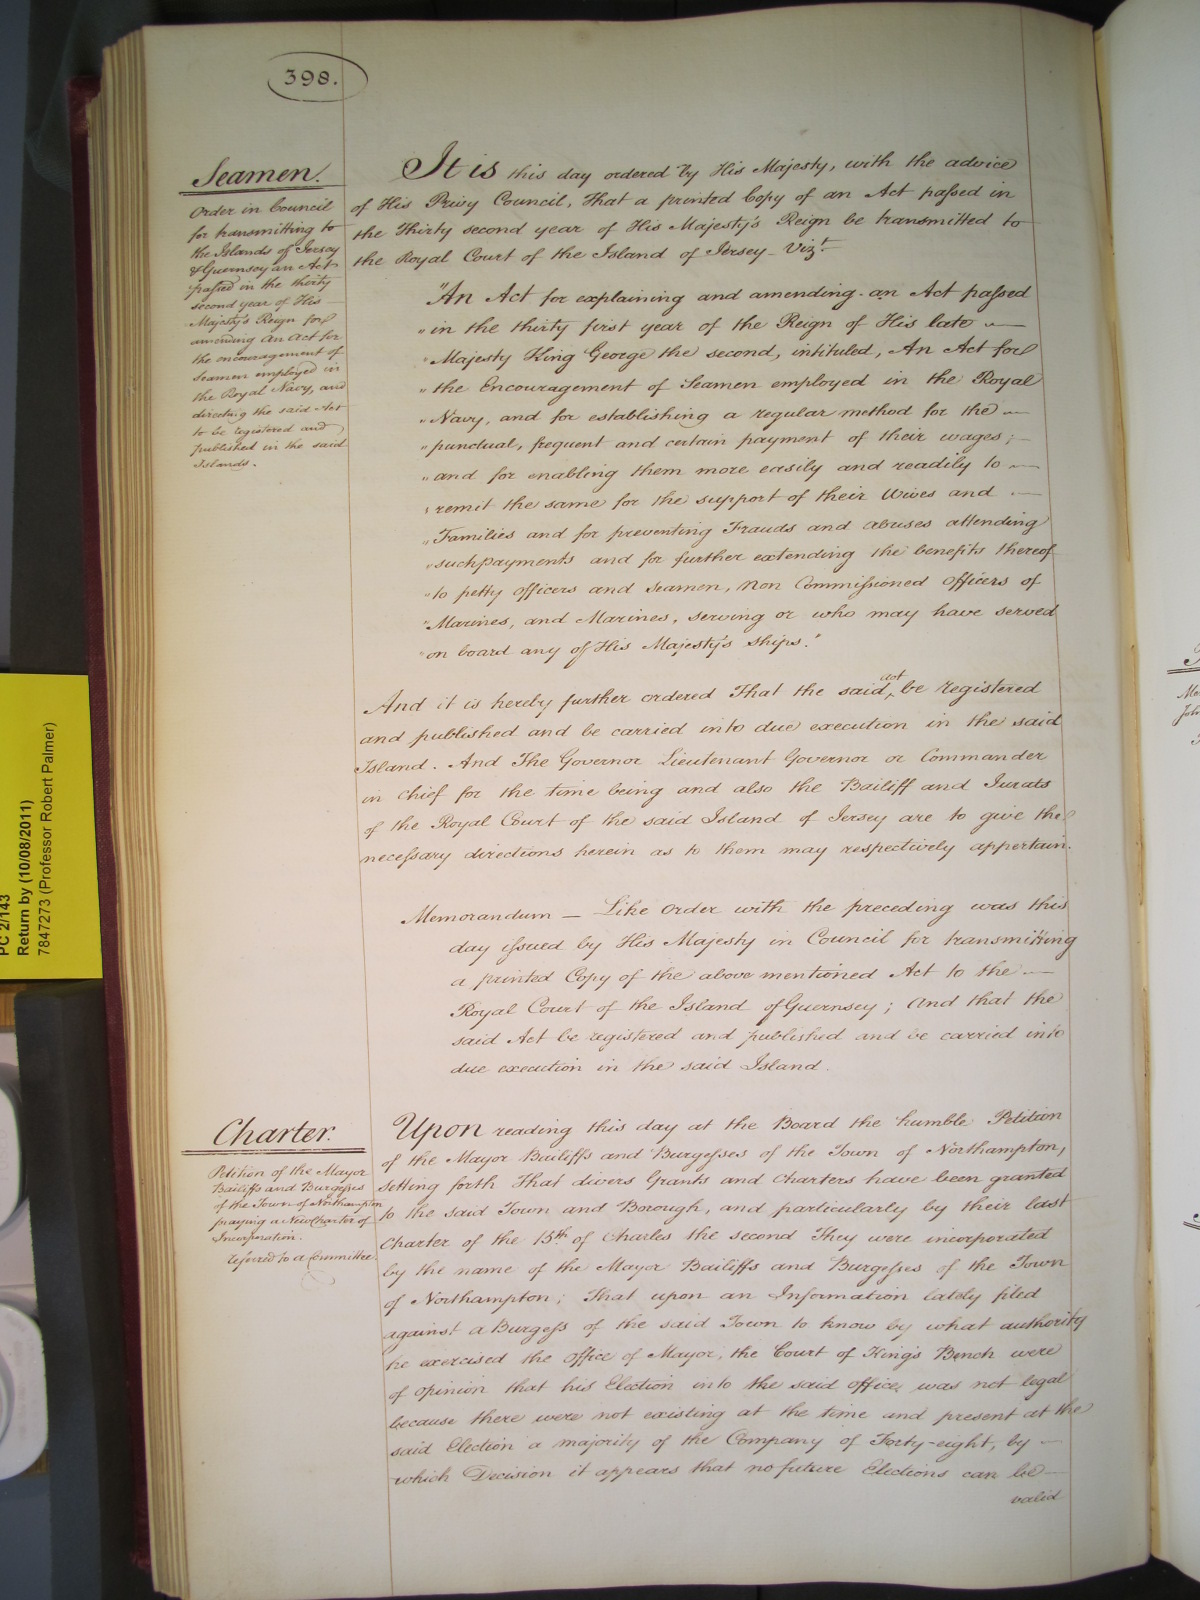 398.
Seamen.
Order in Council
for transmitting to
the Islands of Jersey
& Guernsey an Act
passed in the thirty
second year of His
Majesty's Reign for
amending an Act for
the encouragement of
Seamen employed in
the Royal Navy, and
directing the said Act
to be registered and
published in the said
Islands.
It is this day ordered by His Majesty, with the advice
of His Privy Council, That a printed Copy of an Act passed in
the Thirty second year of His Majesty's Reign be transmitted to
the Royal Court of the Island of Jersey - Vizt.
"An Act for explaining and amending an Act passed
" in the thirty first year of the Reign of His late
" Majesty King George the second, intituled, An Act for
" the Encouragement of Seamen employed in the Royal
" Navy, and for establishing a regular method for the
" punctual, frequent and certain payment of their wages;
" and for enabling them more easily and readily to
" remit the same for the support of their Wives and
" Families and for preventing Frauds and abuses attending
" such payments and for further extending the benefits thereof
" to petty officers and Seamen, Non Commissioned Officers of
" Marines, and Marines, serving or who may have served
" on board any of His Majesty's Ships."
And it is hereby further ordered That the said act be registered
and published and be carried into due execution in the said
Island. And The Governor Lieutenant Governor or Commander
in Chief for the time being and also the Bailiff and Jurats
of the Royal Court of the said Island of Jersey are to give the
necessary directions herein as to them may respectively appertain.
Memorandum — Like Order with the preceding was this
day issued by His Majesty in Council for transmitting
a printed Copy of the above mentioned Act to the
Royal Court of the Island of Guernsey; And that the
said Act be registered and published and be carried into
due execution in the said Island.
Charter.
Petition of the Mayor
Bailiffs and Burgesses
of the Town of Northampton
praying a New Charter of
Incorporation.
referred to a Committee.
Upon reading this day at the Board the humble Petition
of the Mayor Bailiffs and Burgesses of the Town of Northampton,
setting forth That divers Grants and Charters have been granted
to the said Town and Borough, and particularly by their last
Charter of the 15th of Charles the second They were incorporated
by the name of the Mayor Bailiffs and Burgesses of the Town
of Northampton; That upon an Information lately filed
against a Burgess of the said Town to know by what authority
he exercised the Office of Mayor, the Court of King's Bench were
of opinion that his Election into the said office was not legal
because there were not existing at the time and present at the
said Election a majority of the Company of Forty-eight, by
which Decision it appears that no future Elections can be
valid
PC 2/143
Return by (10/08/2011)
7847273 (Professor Robert Palmer)